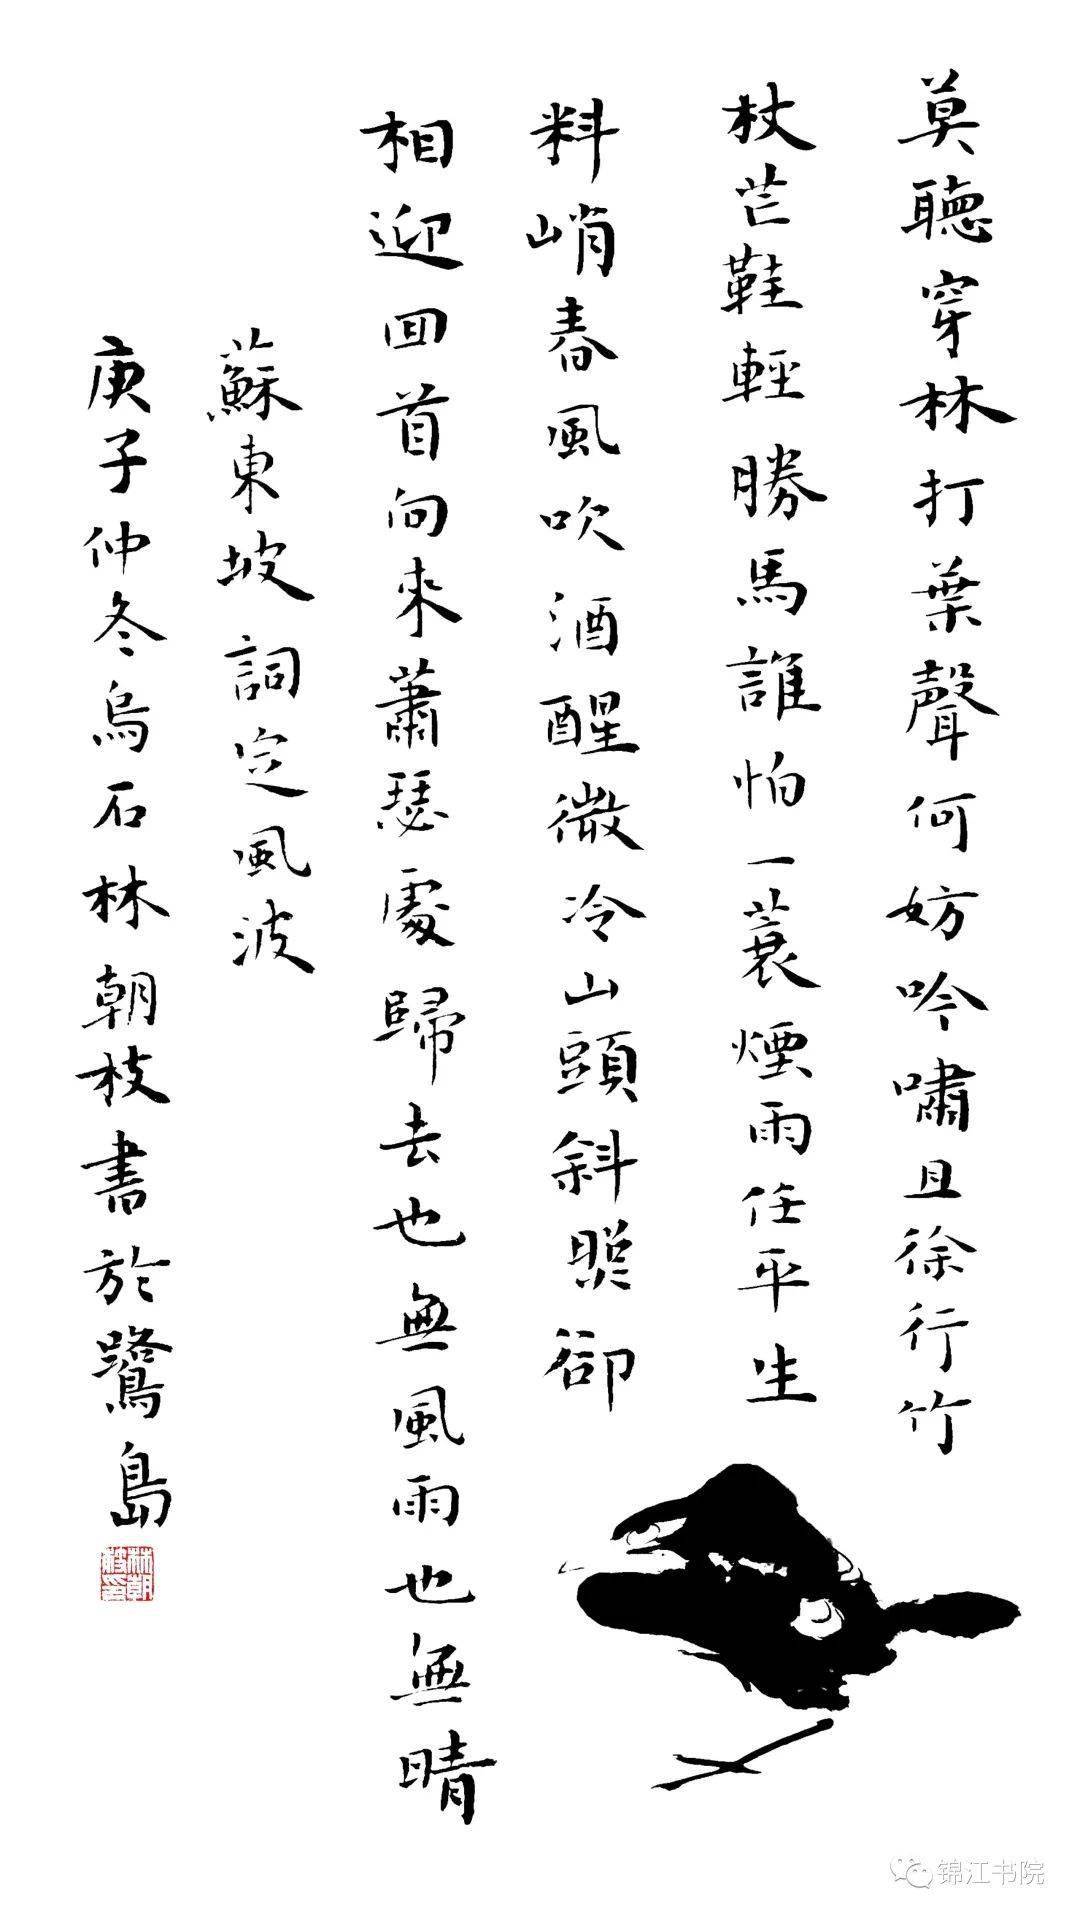 莫聽穿林打葉聲何妨吟嘯且徐行竹
杖芒鞋輕勝馬誰怕一蓑煙雨任平生
料峭春風吹酒醒微冷山頭斜照卻
相迎回首向來蕭瑟處歸去也無風雨也無晴
蘇東坡詞定風波
庚子仲冬烏石林朝枝書於鷺島
林朝枝印
锦江书院